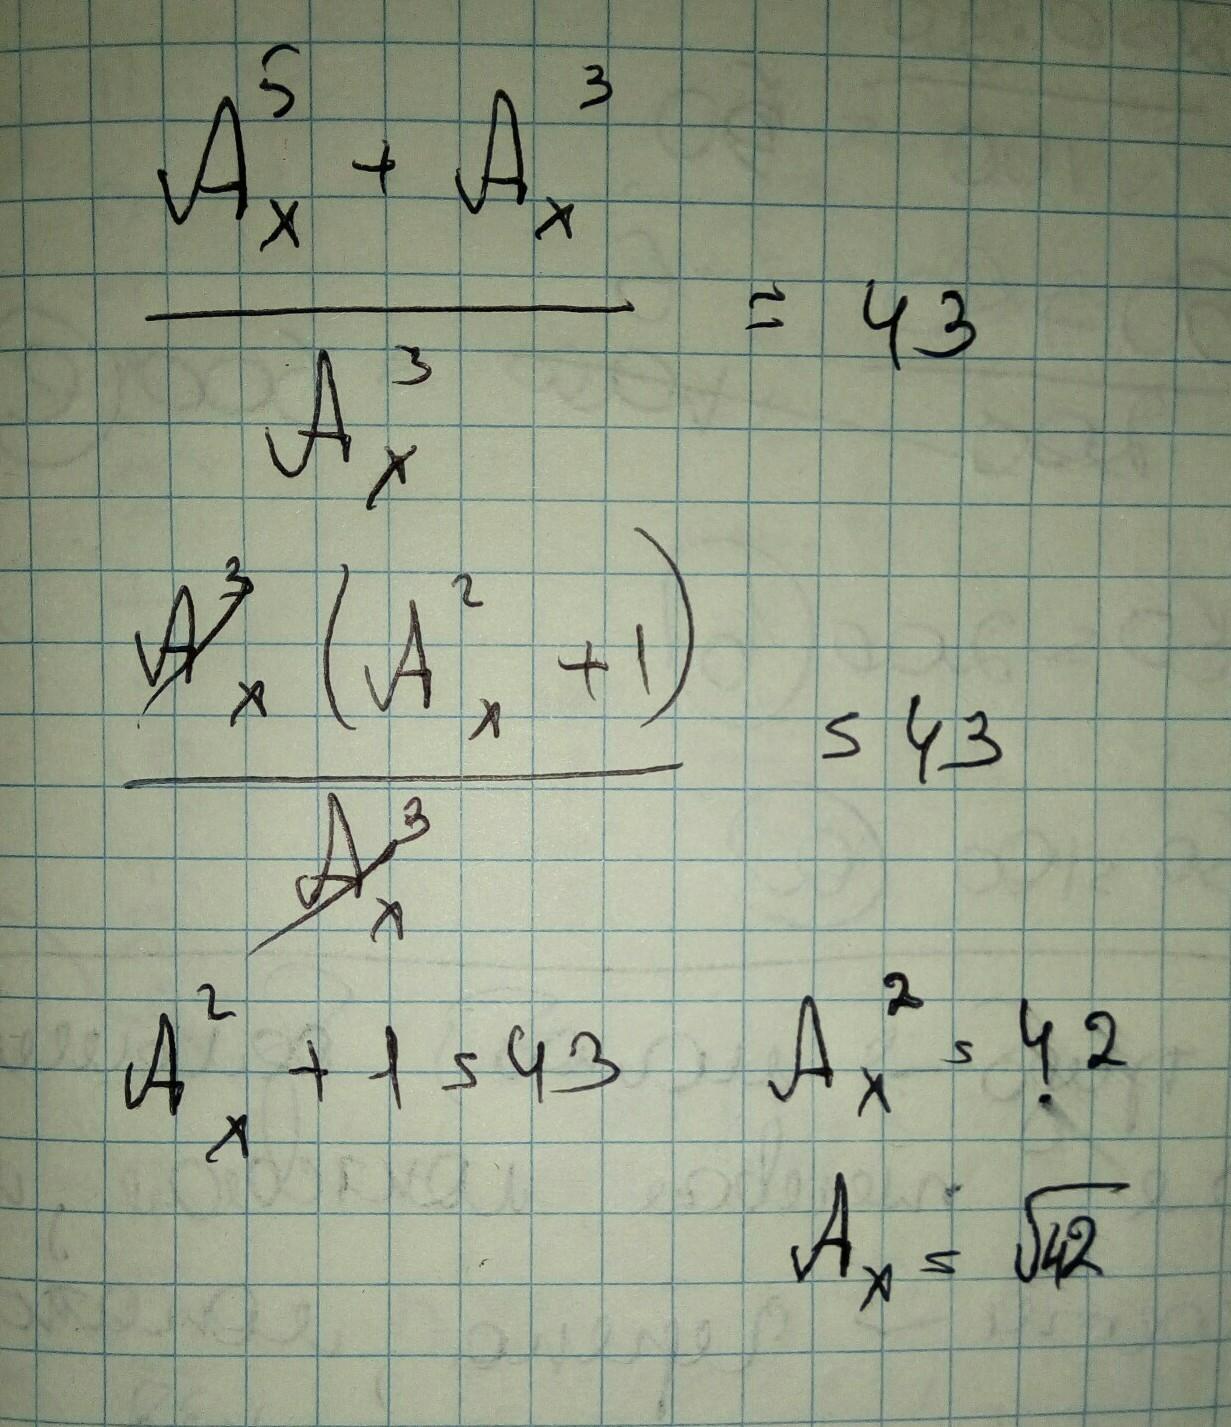 A_x^5 + A_x^3
= 43
A_x^3
A_x^3 (A_x^2 + 1)
= 43
A_x^3
A_x^2 + 1 = 43 A_x^2 = 42
A_x = √42